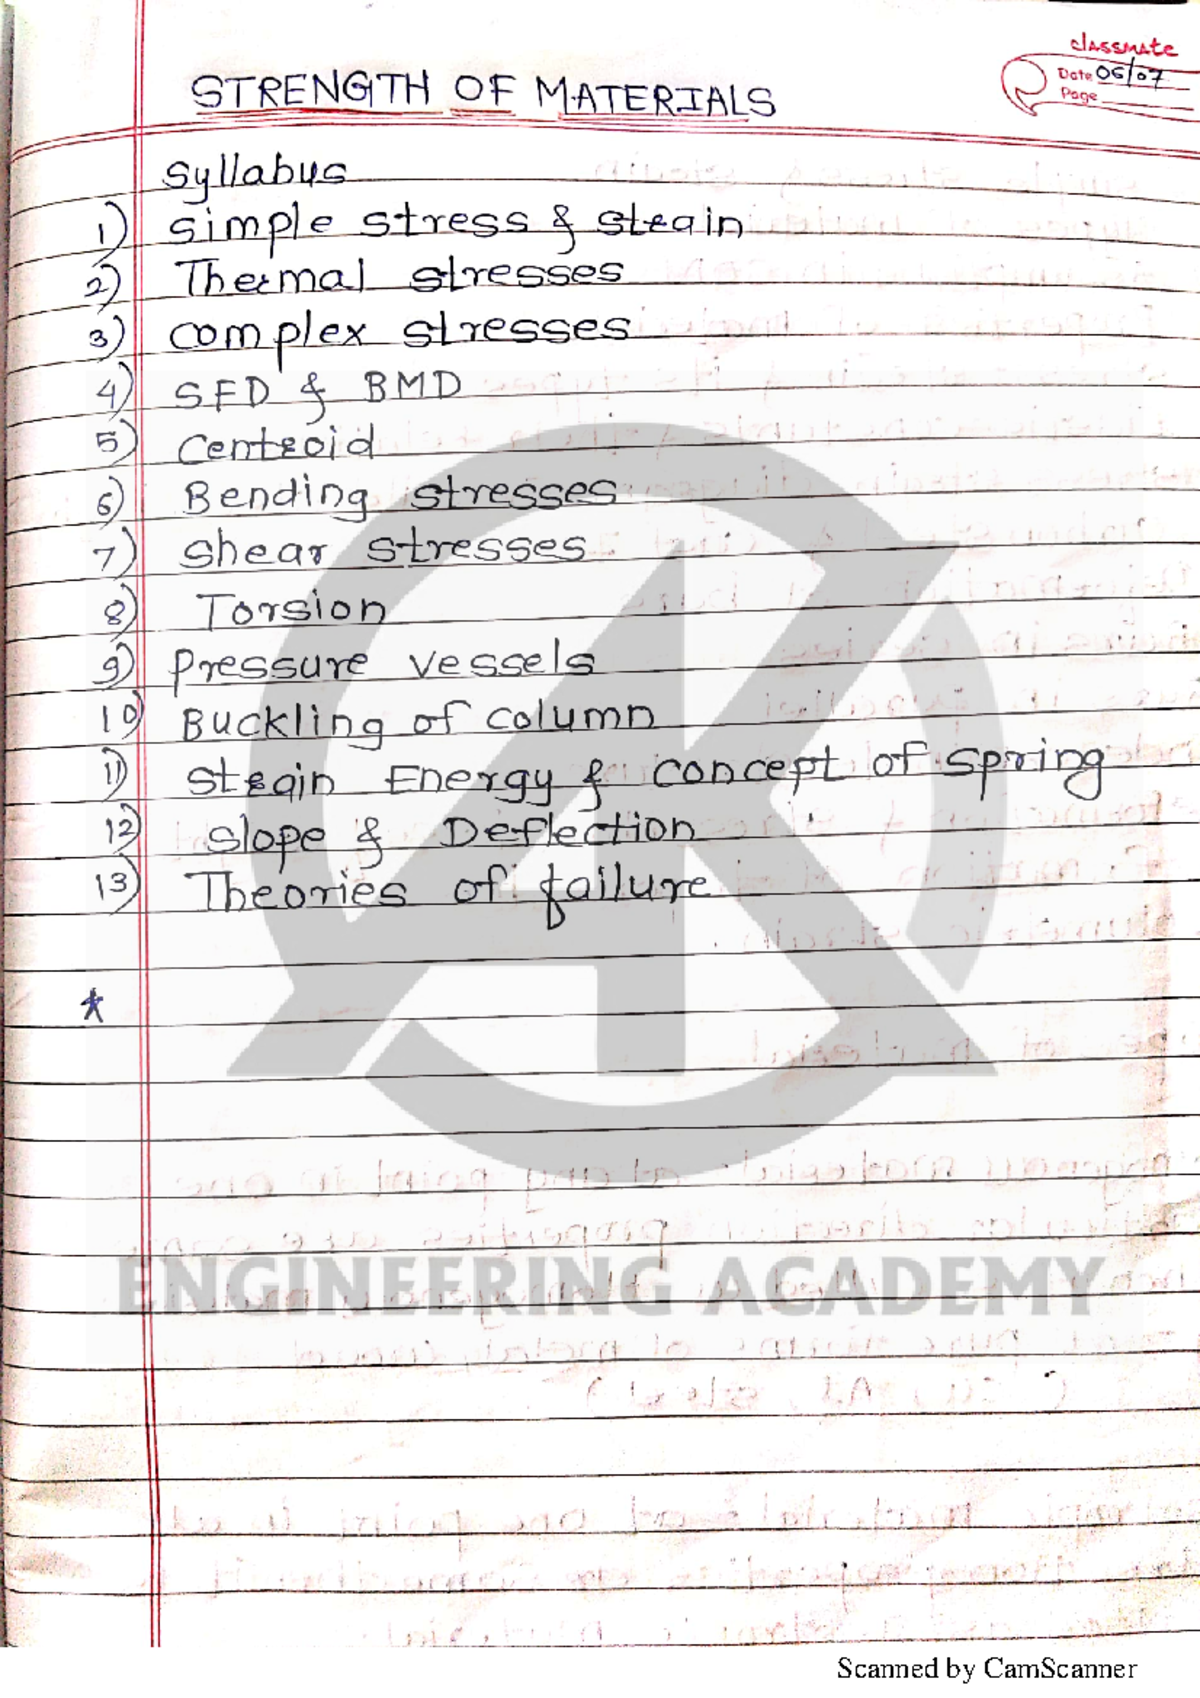 classmate
Date 06/07
Page
STRENGTH OF MATERIALS
Syllabus
1) Simple stress & strain
2) Thermal stresses
3) complex stresses
4) SFD & BMD
5) Centroid
6) Bending stresses
7) Shear stresses
8) Torsion
9) Pressure vessels
10) Buckling of column
11) Strain Energy & concept of spring
12) Slope & Deflection
13) Theories of failure
*
AK
ENGINEERING ACADEMY
Scanned by CamScanner